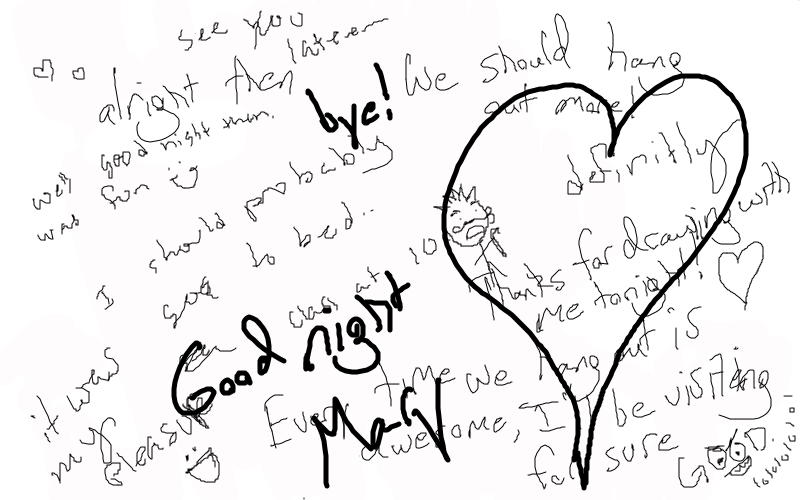 see you
laterrrr
alright then
bye!
We should hang
out more!!
good night then.
well
was fun
definitly
I should probably
goo to bed..
class at 10
Thanks for drawing with
me tonight!
Good night
Mary
it was
my pleasure
Every time we hang out is
awesome, I'll be visiting
for sure
lolololololol